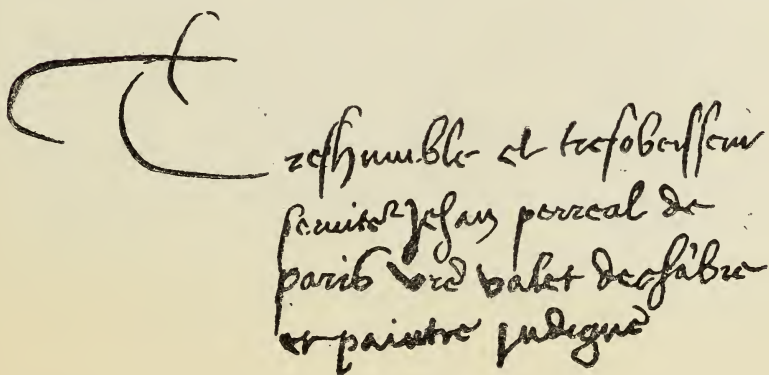 Treshumble et tresobeissent
serviteʳ Jehan perreal de
paris vr̃e valet de chãbre
et paintre indigne